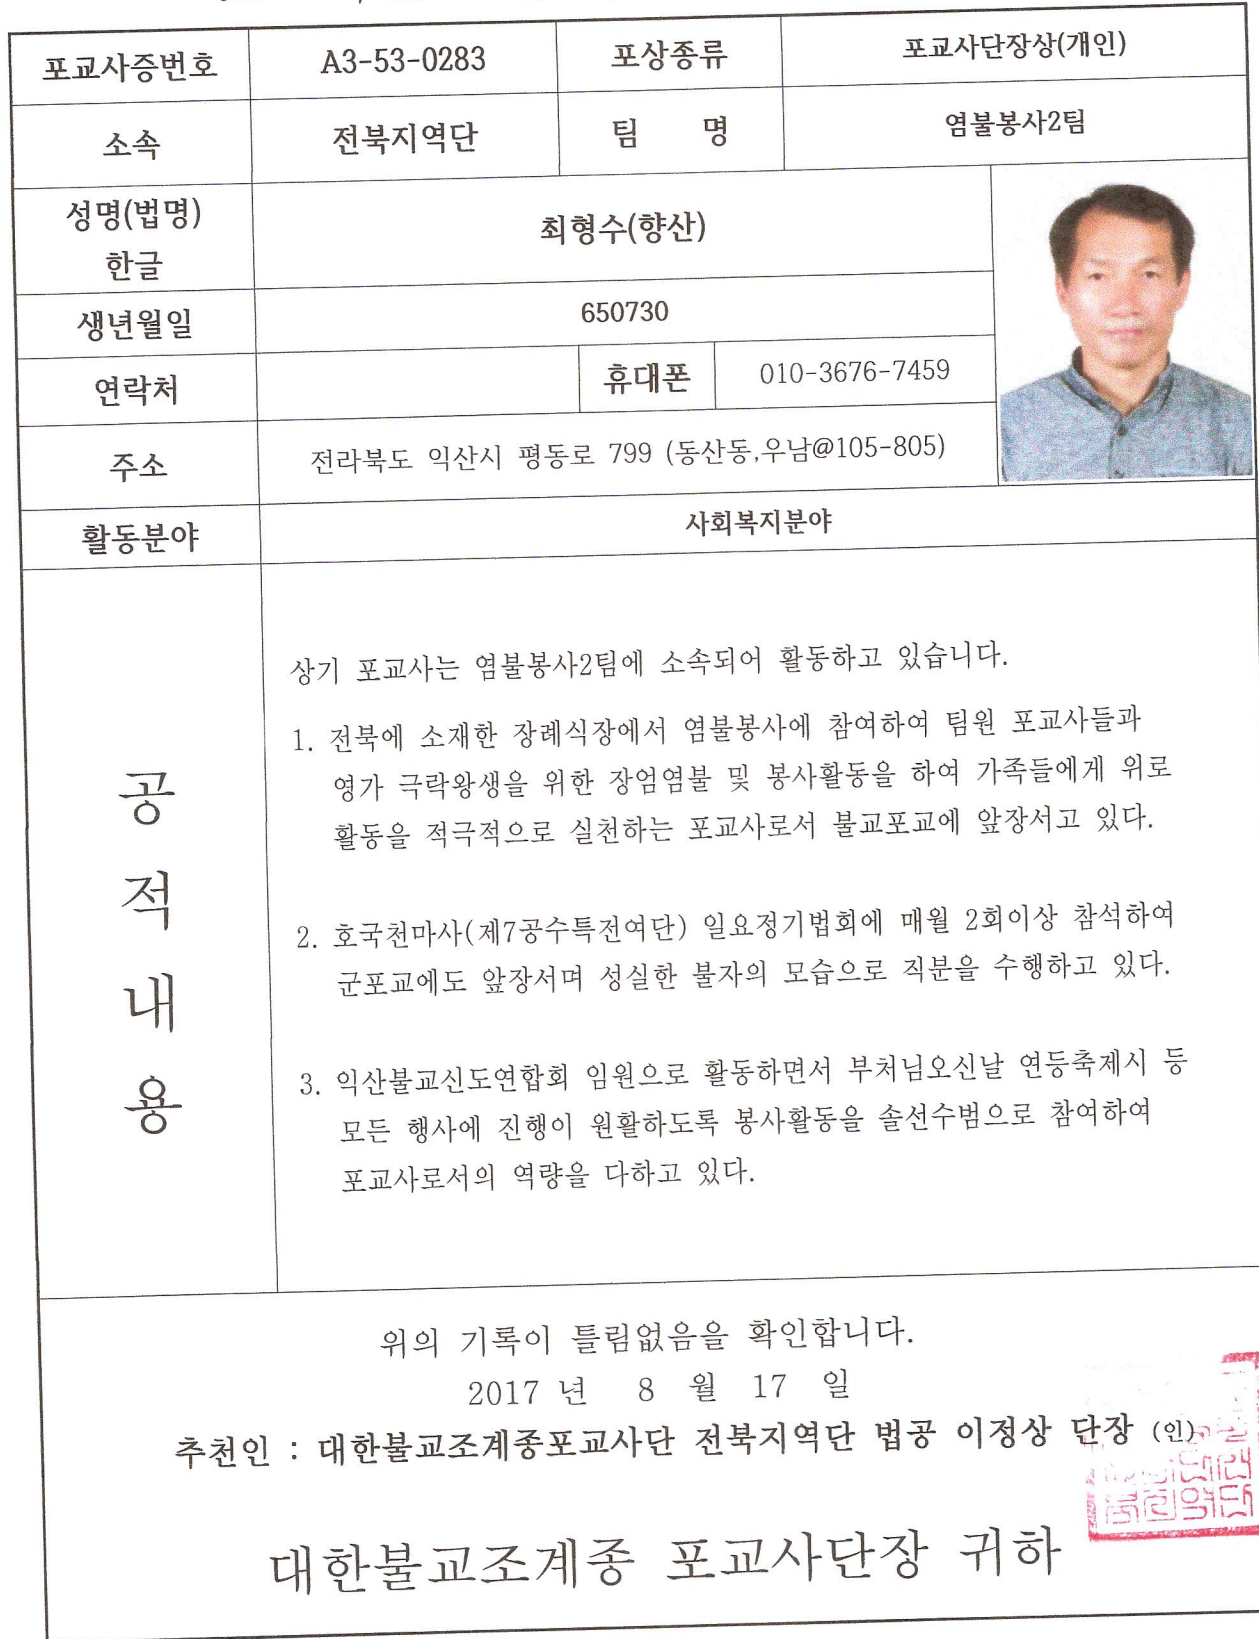 포교사증번호 A3-53-0283 포상종류 포교사단장상(개인)
소속 전북지역단 팀 명 염불봉사2팀
성명(법명)
한글
최형수(향산)
생년월일 650730
연락처 휴대폰 010-3676-7459
주소 전라북도 익산시 평동로 799 (동산동,우남@105-805)
활동분야 사회복지분야
공
적
내
용
상기 포교사는 염불봉사2팀에 소속되어 활동하고 있습니다.
1. 전북에 소재한 장례식장에서 염불봉사에 참여하여 팀원 포교사들과
영가 극락왕생을 위한 장엄염불 및 봉사활동을 하여 가족들에게 위로
활동을 적극적으로 실천하는 포교사로서 불교포교에 앞장서고 있다.
2. 호국천마사(제7공수특전여단) 일요정기법회에 매월 2회이상 참석하여
군포교에도 앞장서며 성실한 불자의 모습으로 직분을 수행하고 있다.
3. 익산불교신도연합회 임원으로 활동하면서 부처님오신날 연등축제시 등
모든 행사에 진행이 원활하도록 봉사활동을 솔선수범으로 참여하여
포교사로서의 역량을 다하고 있다.
위의 기록이 틀림없음을 확인합니다.
2017 년 8 월 17 일
추천인 : 대한불교조계종포교사단 전북지역단 법공 이정상 단장 (인)
대한불교조계종 포교사단장 귀하